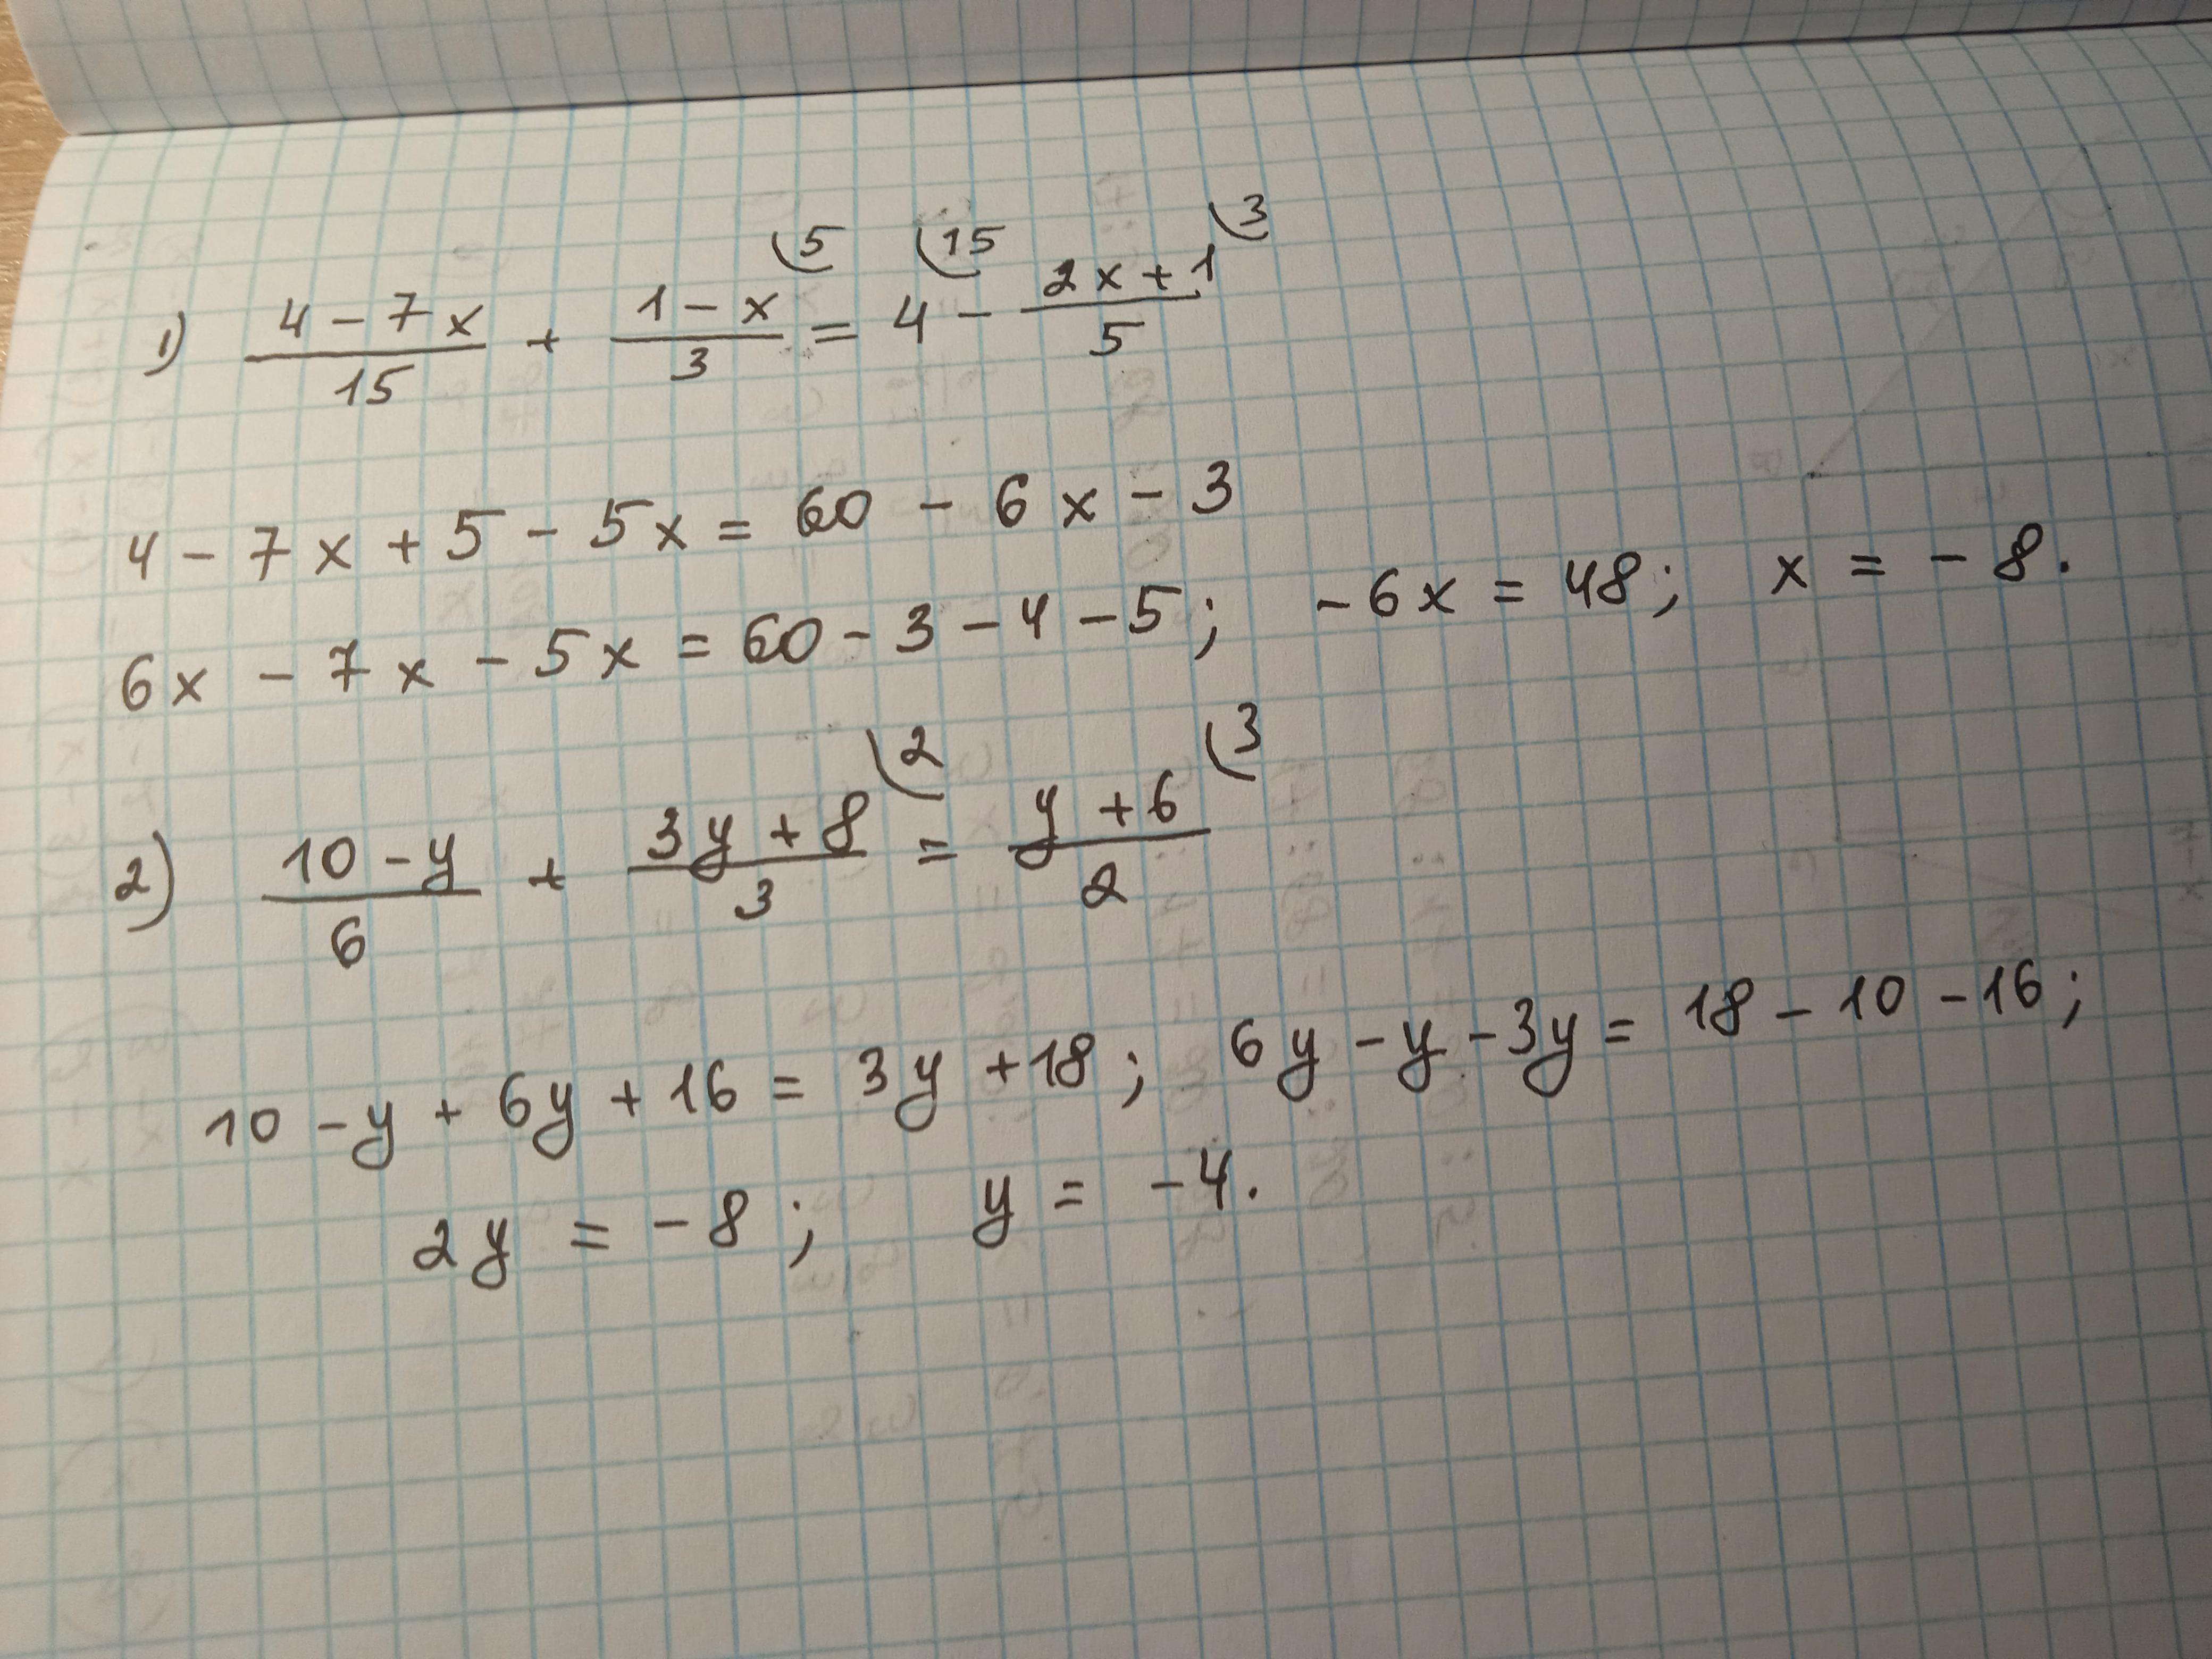 1) (4 - 7x)/15 + (1 - x)/3 (5 = 4 (15 - (2x + 1)/5 (3
4 - 7x + 5 - 5x = 60 - 6x - 3
6x - 7x - 5x = 60 - 3 - 4 - 5; -6x = 48; x = -8.
2) (10 - y)/6 + (3y + 8)/3 (2 = (y + 6)/2 (3
10 - y + 6y + 16 = 3y + 18; 6y - y - 3y = 18 - 10 - 16;
2y = -8; y = -4.